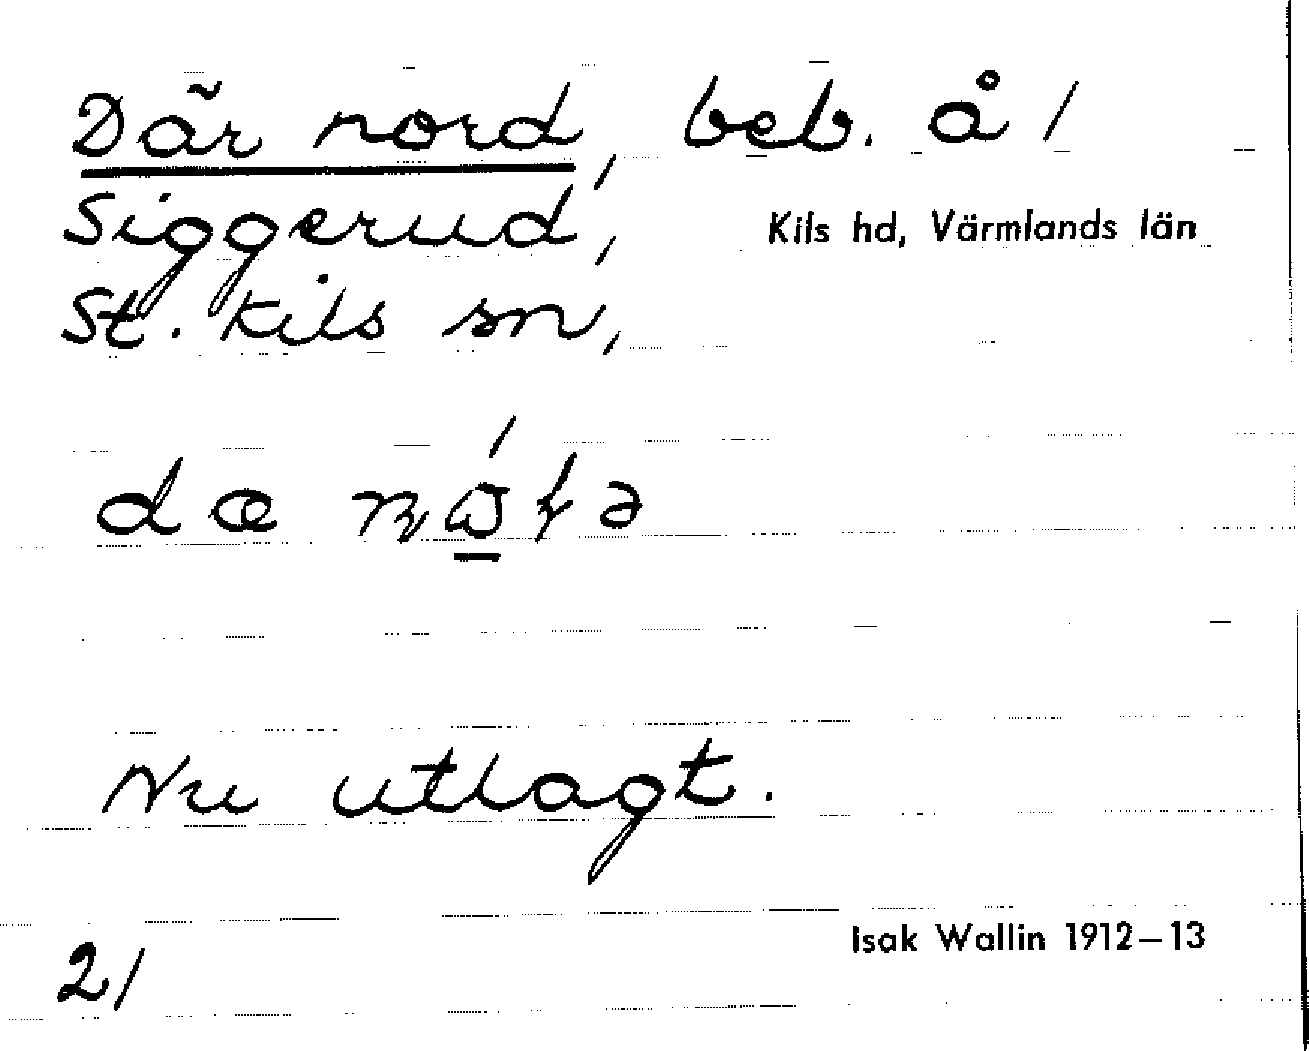 Där nord, beb. å 1
Siggerud,
Kils hd, Värmlands län
St. Kils sn,
Nu utlagt.
Isak Wallin 1912–13
21